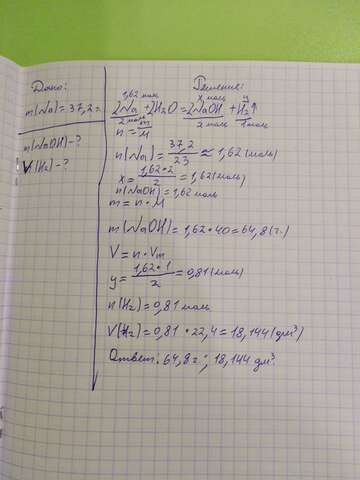 Дано:
m(Na)=37,2г
m(NaOH)-?
V(H₂)-?
Решение:
1,62 моль x моль y
2Na + 2H₂O = 2NaOH + H₂↑
2 моль 2 моль 1 моль
n = m/M
n(Na) = 37,2/23 ≈ 1,62 (моль)
x = 1,62·2/2 = 1,62 (моль)
n(NaOH) = 1,62 моль
m = n·M
m(NaOH) = 1,62·40 = 64,8 (г.)
V = n·Vm
y = 1,62·1/2 = 0,81 (моль)
n(H₂) = 0,81 моль
V(H₂) = 0,81·22,4 = 18,144 (дм³)
Ответ: 64,8 г.; 18,144 дм³.